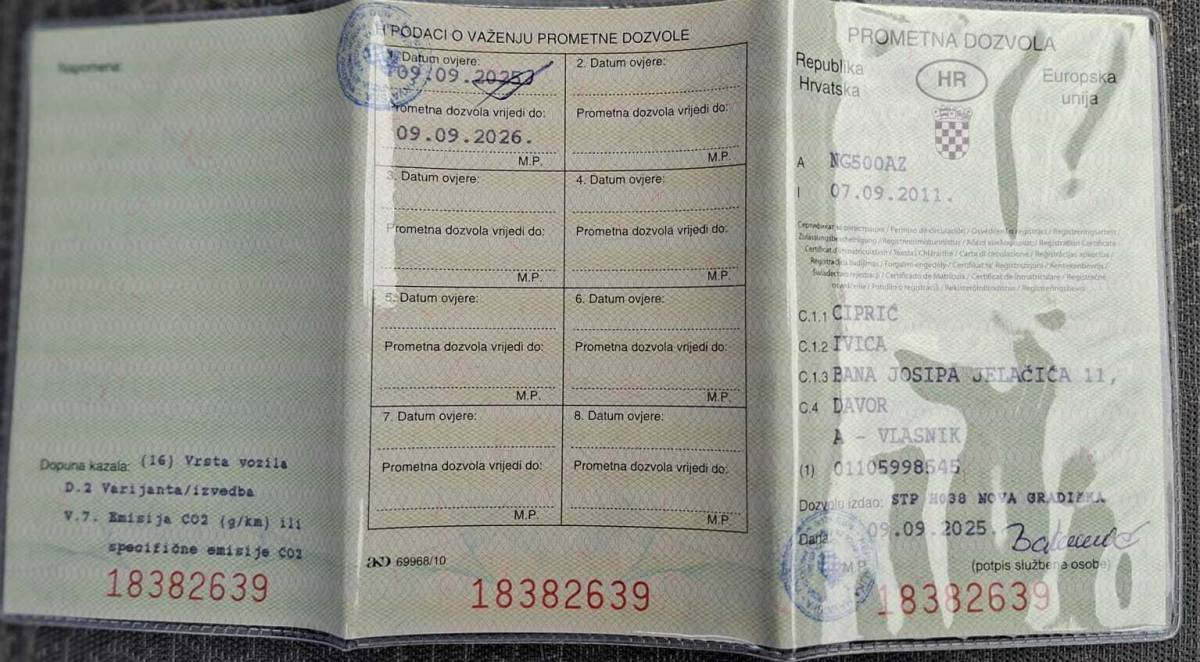 Napomena:
Dopuna kazala: (16) Vrsta vozila
D.2 Varijanta/izvedba
V.7. Emisija CO2 (g/km) ili
specifične emisije CO2
18382639
PODACI O VAŽENJU PROMETNE DOZVOLE
1. Datum ovjere:
09.09.2025
Prometna dozvola vrijedi do:
09.09.2026.
M.P.
2. Datum ovjere:
Prometna dozvola vrijedi do:
M.P.
3. Datum ovjere:
Prometna dozvola vrijedi do:
M.P.
4. Datum ovjere:
Prometna dozvola vrijedi do:
M.P.
5. Datum ovjere:
Prometna dozvola vrijedi do:
M.P.
6. Datum ovjere:
Prometna dozvola vrijedi do:
M.P.
7. Datum ovjere:
Prometna dozvola vrijedi do:
M.P.
8. Datum ovjere:
Prometna dozvola vrijedi do:
M.P.
69968/10
18382639
PROMETNA DOZVOLA
Republika
Hrvatska
HR
Europska
unija
A NG500AZ
I 07.09.2011.
C.1.1 CIPRIĆ
C.1.2 IVICA
C.1.3 BANA JOSIPA JELAČIĆA 11,
C.4 DAVOR
A - VLASNIK
(1) 01105998545
Dozvolu izdao: STP H038 NOVA GRADIŠKA
Dana: 09.09.2025.
M.P.
(potpis službene osobe)
18382639